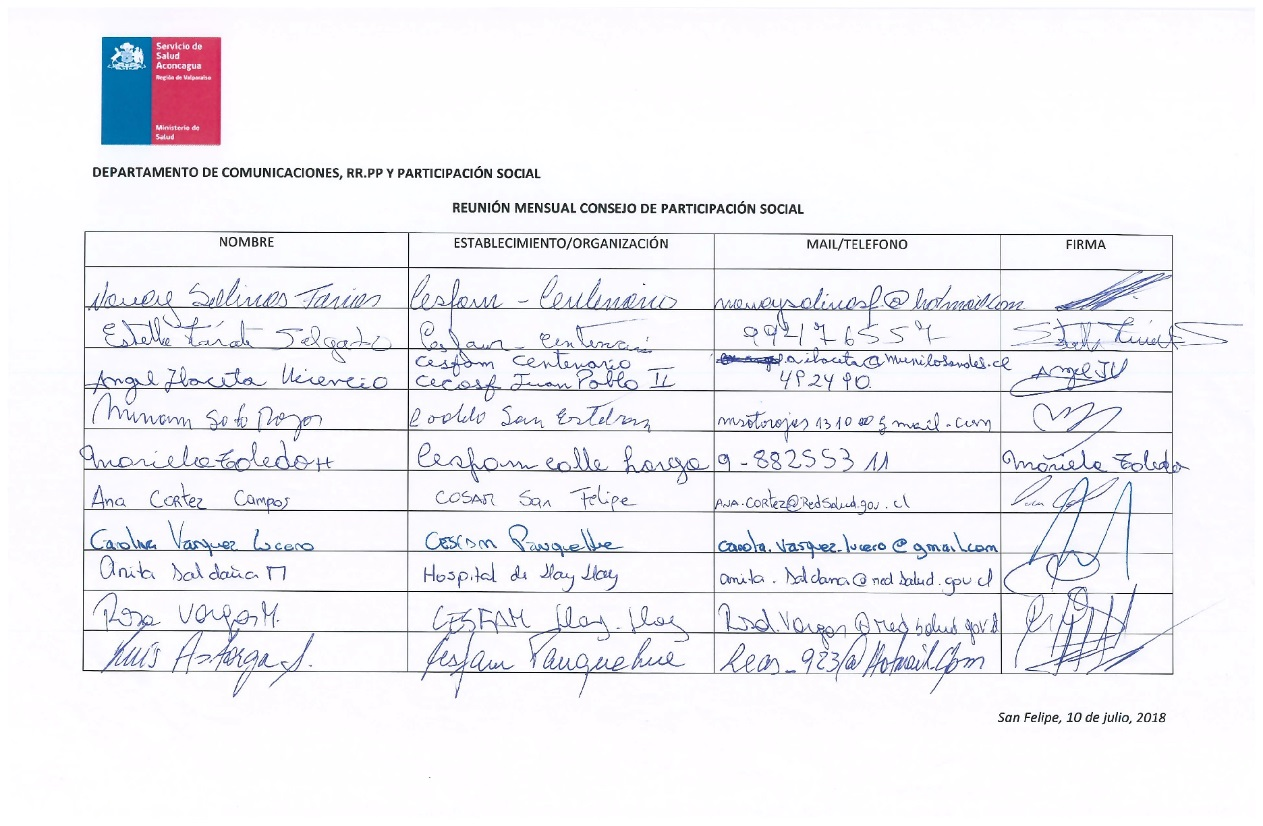 Servicio de
Salud
Aconcagua
Región de Valparaíso
Ministerio de
Salud
DEPARTAMENTO DE COMUNICACIONES, RR.PP Y PARTICIPACIÓN SOCIAL
REUNIÓN MENSUAL CONSEJO DE PARTICIPACIÓN SOCIAL
NOMBRE ESTABLECIMIENTO/ORGANIZACIÓN MAIL/TELEFONO FIRMA
Salinas Farias Cesfam - Centenario
Zárate Salgado Cesfam Centenario 992176557
Angel Ibaceta Vicencio Cesfam Centenario
Cecosf Juan Pablo II a.ibaceta@munilosandes.cl
492490 Angel
Miriam Soto Rojas San Esteban
Mariela Toledo H Cesfam calle larga 9-88255311 Mariela Toledo
Ana Cortez Campos COSAM San Felipe ANA.CORTEZ@RedSalud.gov.cl
Carolina Vasquez Lucero Panquehue carola.vasquez.lucero@gmail.com
Anita Saldaña M Hospital de Llay Llay anita.saldana@redsalud.gov.cl
Rosa Vargas M. CESFAM Llay-Llay
Luis Astorga S. Cesfam Panquehue
San Felipe, 10 de julio, 2018